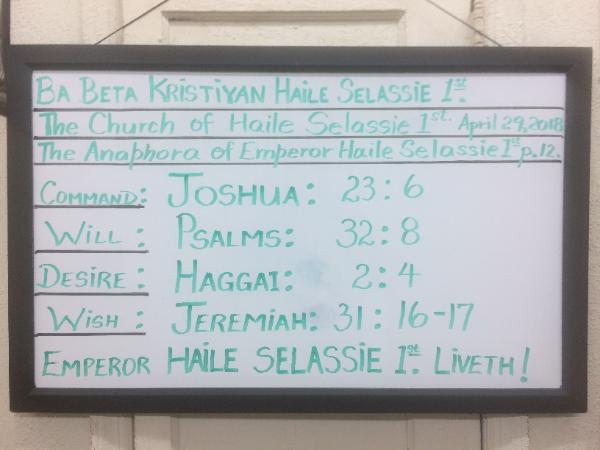 BA BETA KRISTIYAN HAILE SELASSIE 1st.
The Church of Haile Selassie 1st. April 29, 2018
The Anaphora of Emperor Haile Selassie 1st p.12.
COMMAND: JOSHUA: 23:6
WILL: PSALMS: 32:8
DESIRE: HAGGAI: 2:4
WISH: JEREMIAH: 31:16-17
EMPEROR HAILE SELASSIE 1st. LIVETH!